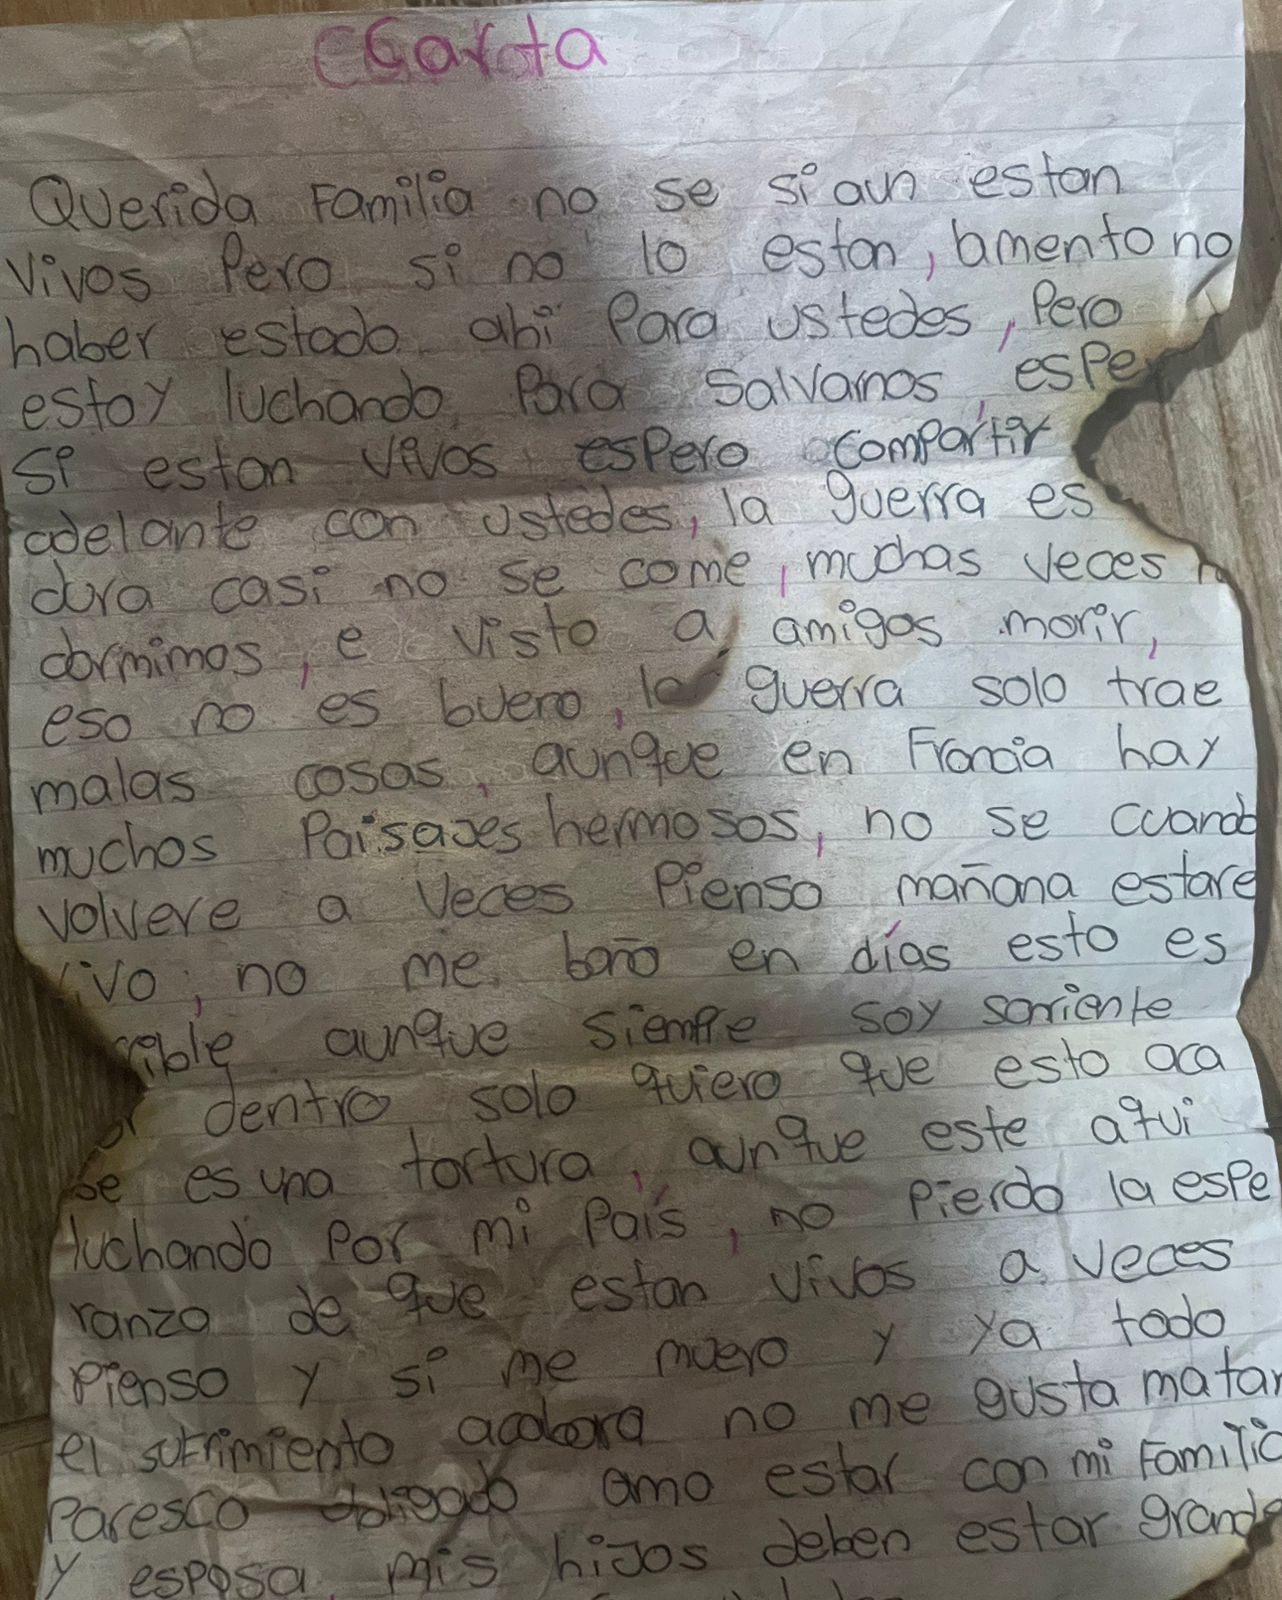 Carta
Querida Familia no se si aun estan
vivos Pero si no lo estan, lamento no
haber estado ahi Para ustedes, Pero
estoy luchando Para Salvarnos, espe
Si estan vivos espero compartir
adelante con ustedes, la guerra es
dura casi no se come, muchas veces
dormimos, e visto a amigos morir,
eso no es bueno, la guerra solo trae
malas cosas, aunque en Francia hay
muchos Paisajes hermosos, no se cuando
volvere a veces Pienso mañana estare
vivo, no me baño en días esto es
rible aunque siempre soy sonriente
dentro solo quiero que esto aca
be es una tortura, aunque este aqui
luchando Por mi País, no Pierdo la espe
ranza de que estan vivos a veces
Pienso y si me muero y ya todo
el sufrimiento acabara no me gusta matar
Paresco obligado amo estar con mi Familia
y esposa, mis hijos deben estar grande